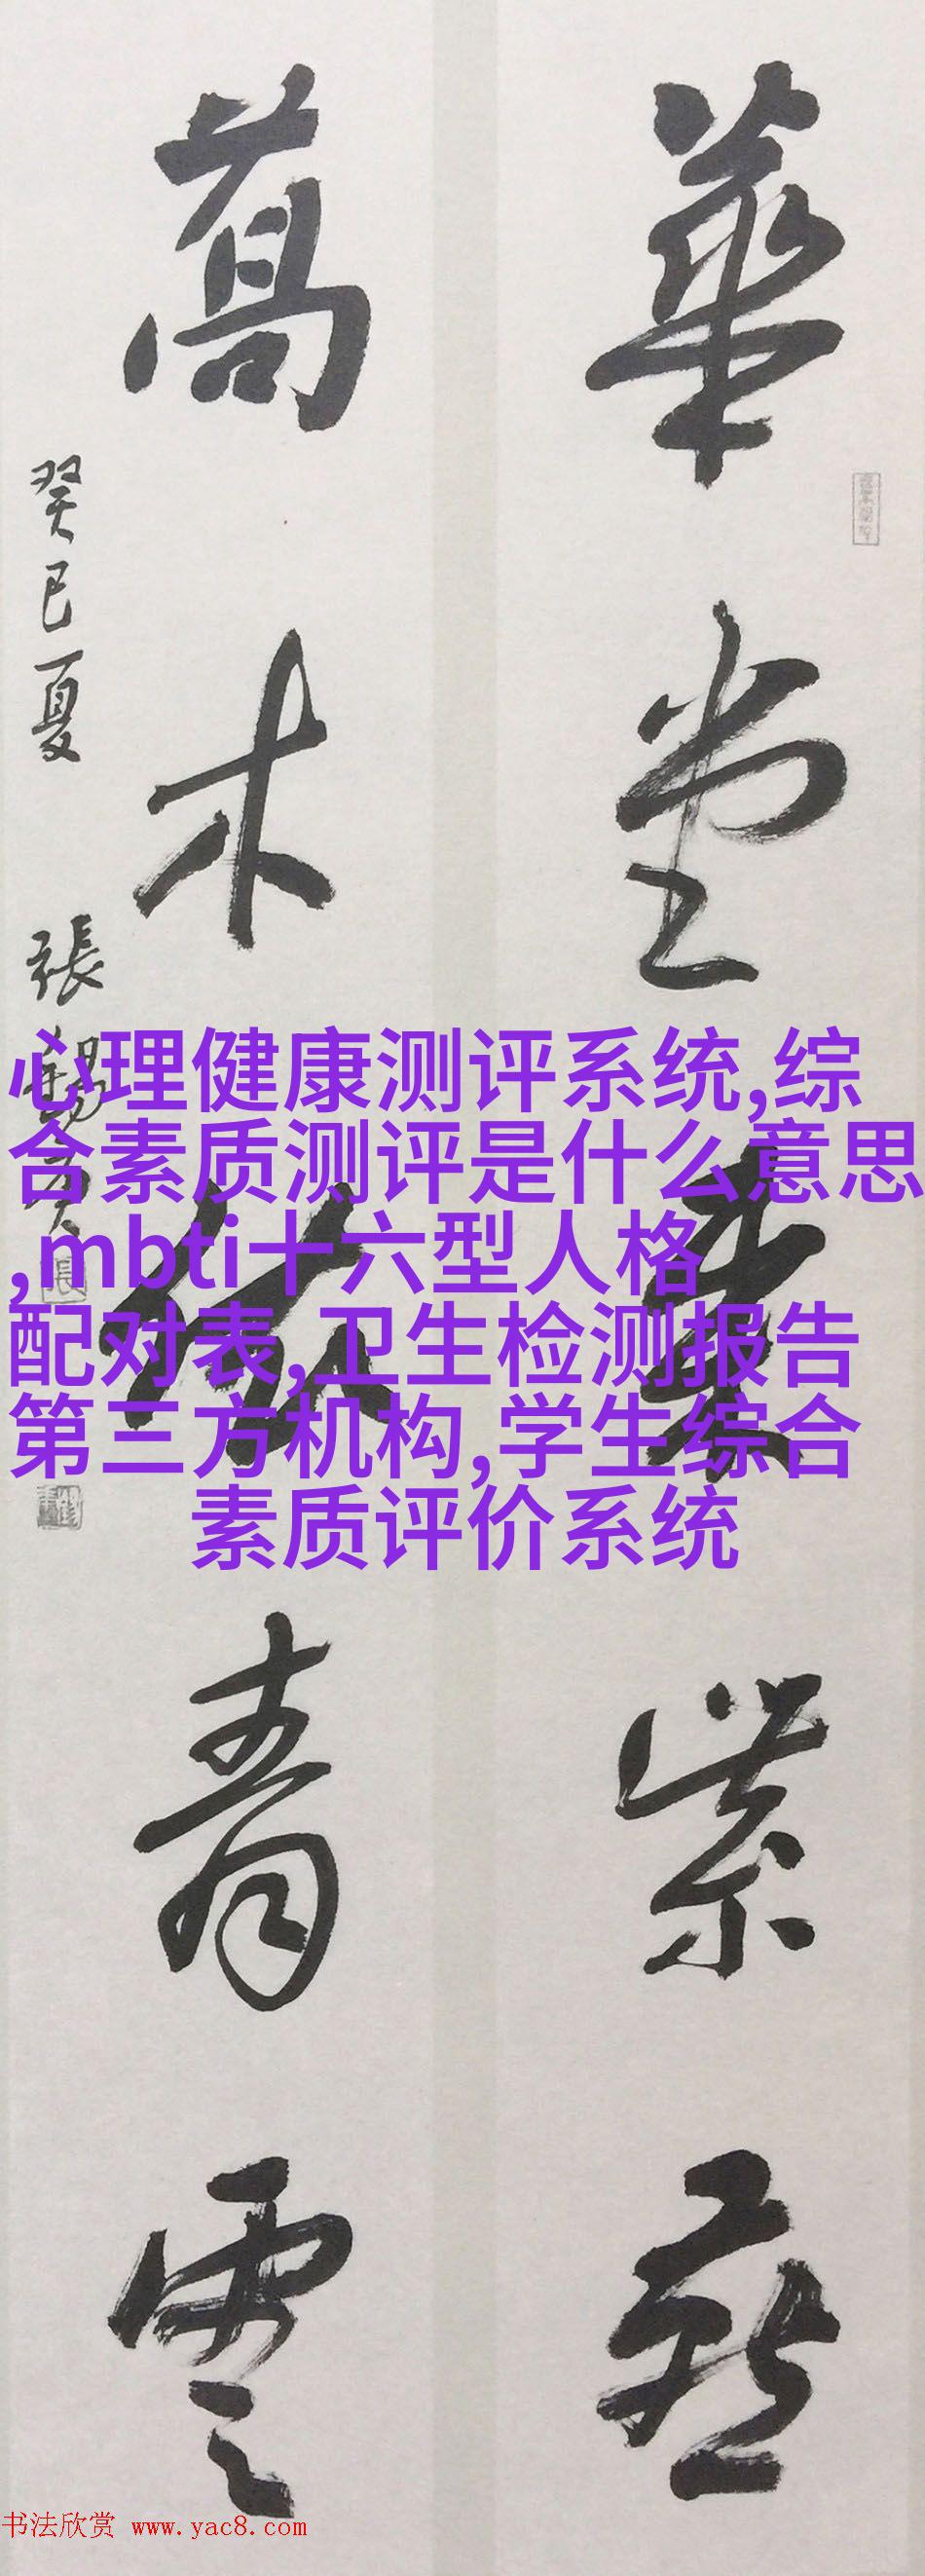 華堂紫
萬木青雲
癸巳夏 張錫
心理健康测评系统,综
合素质测评是什么意思
,mbti十六型人格
配对表,卫生检测报告
第三方机构,学生综合
素质评价系统
书法欣赏 www.yac8.com